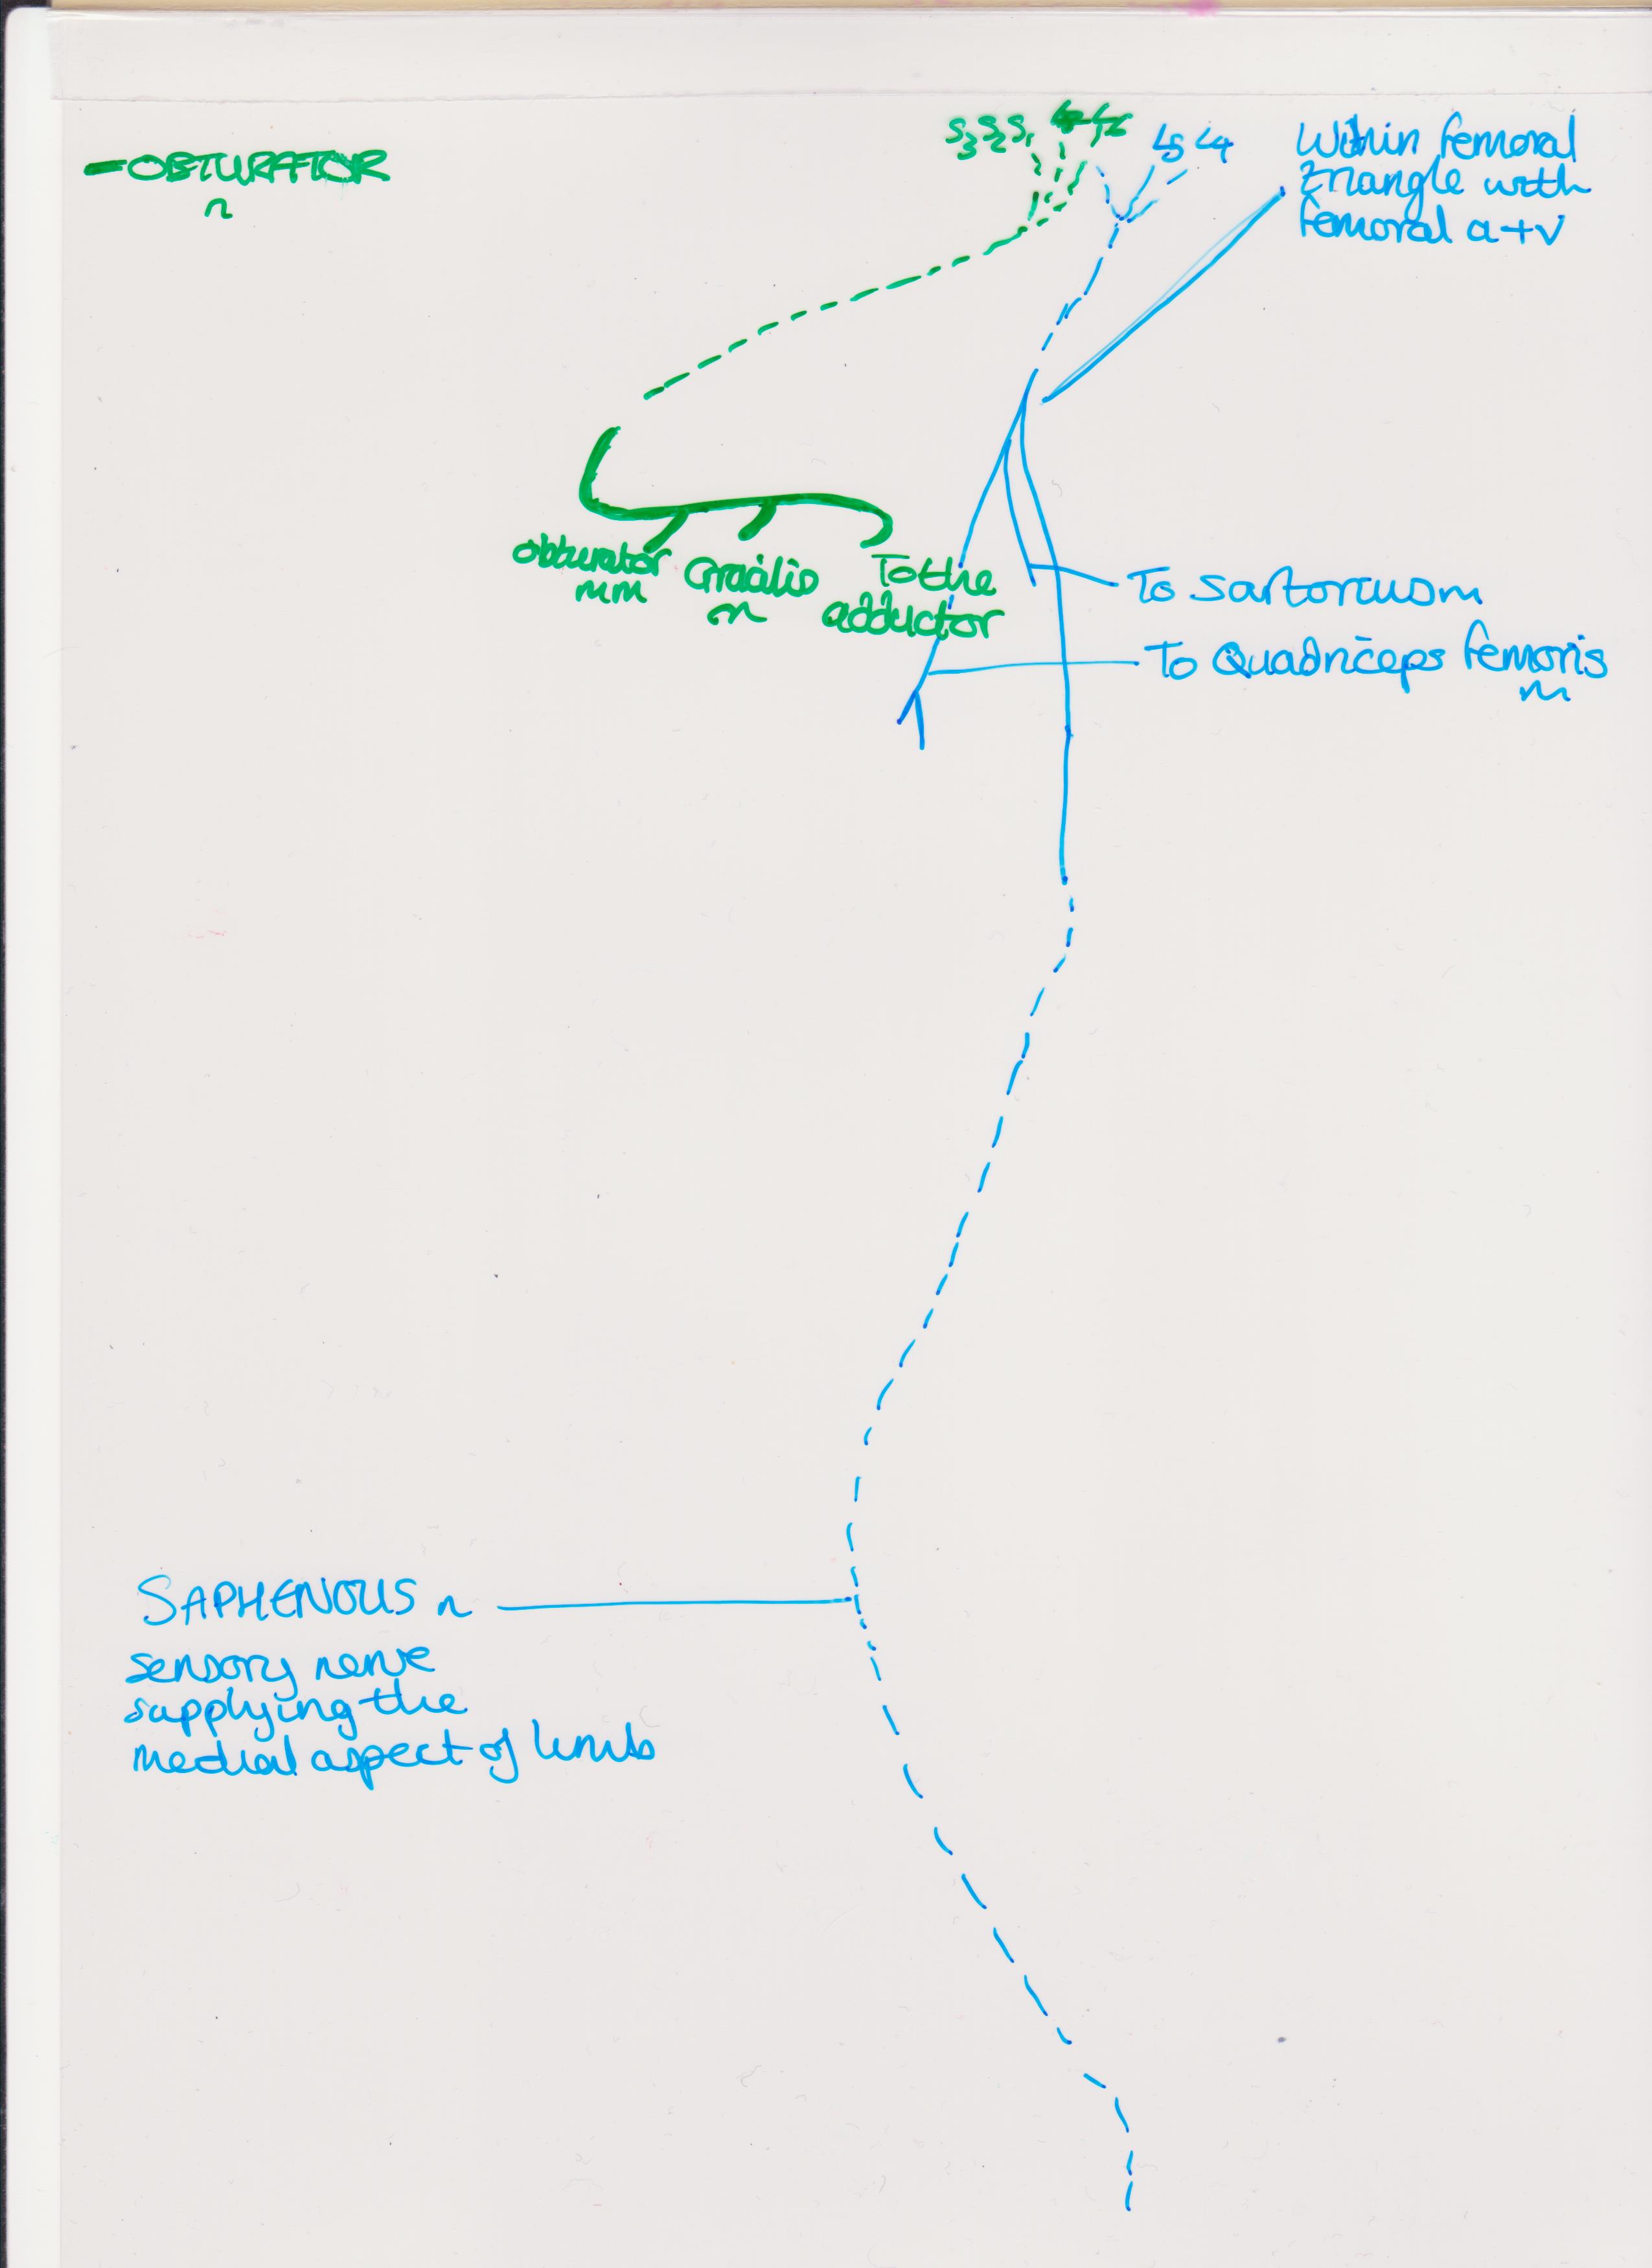 -OBTURATOR
n
S3 S2 S1
L5 L4
Within femoral
triangle with
femoral a+v
obturator
mm
Gracilis
m
To the
adductor
To Sartorius m
To Quadriceps femoris
m
SAPHENOUS n
sensory nerve
supplying the
medial aspect of limb